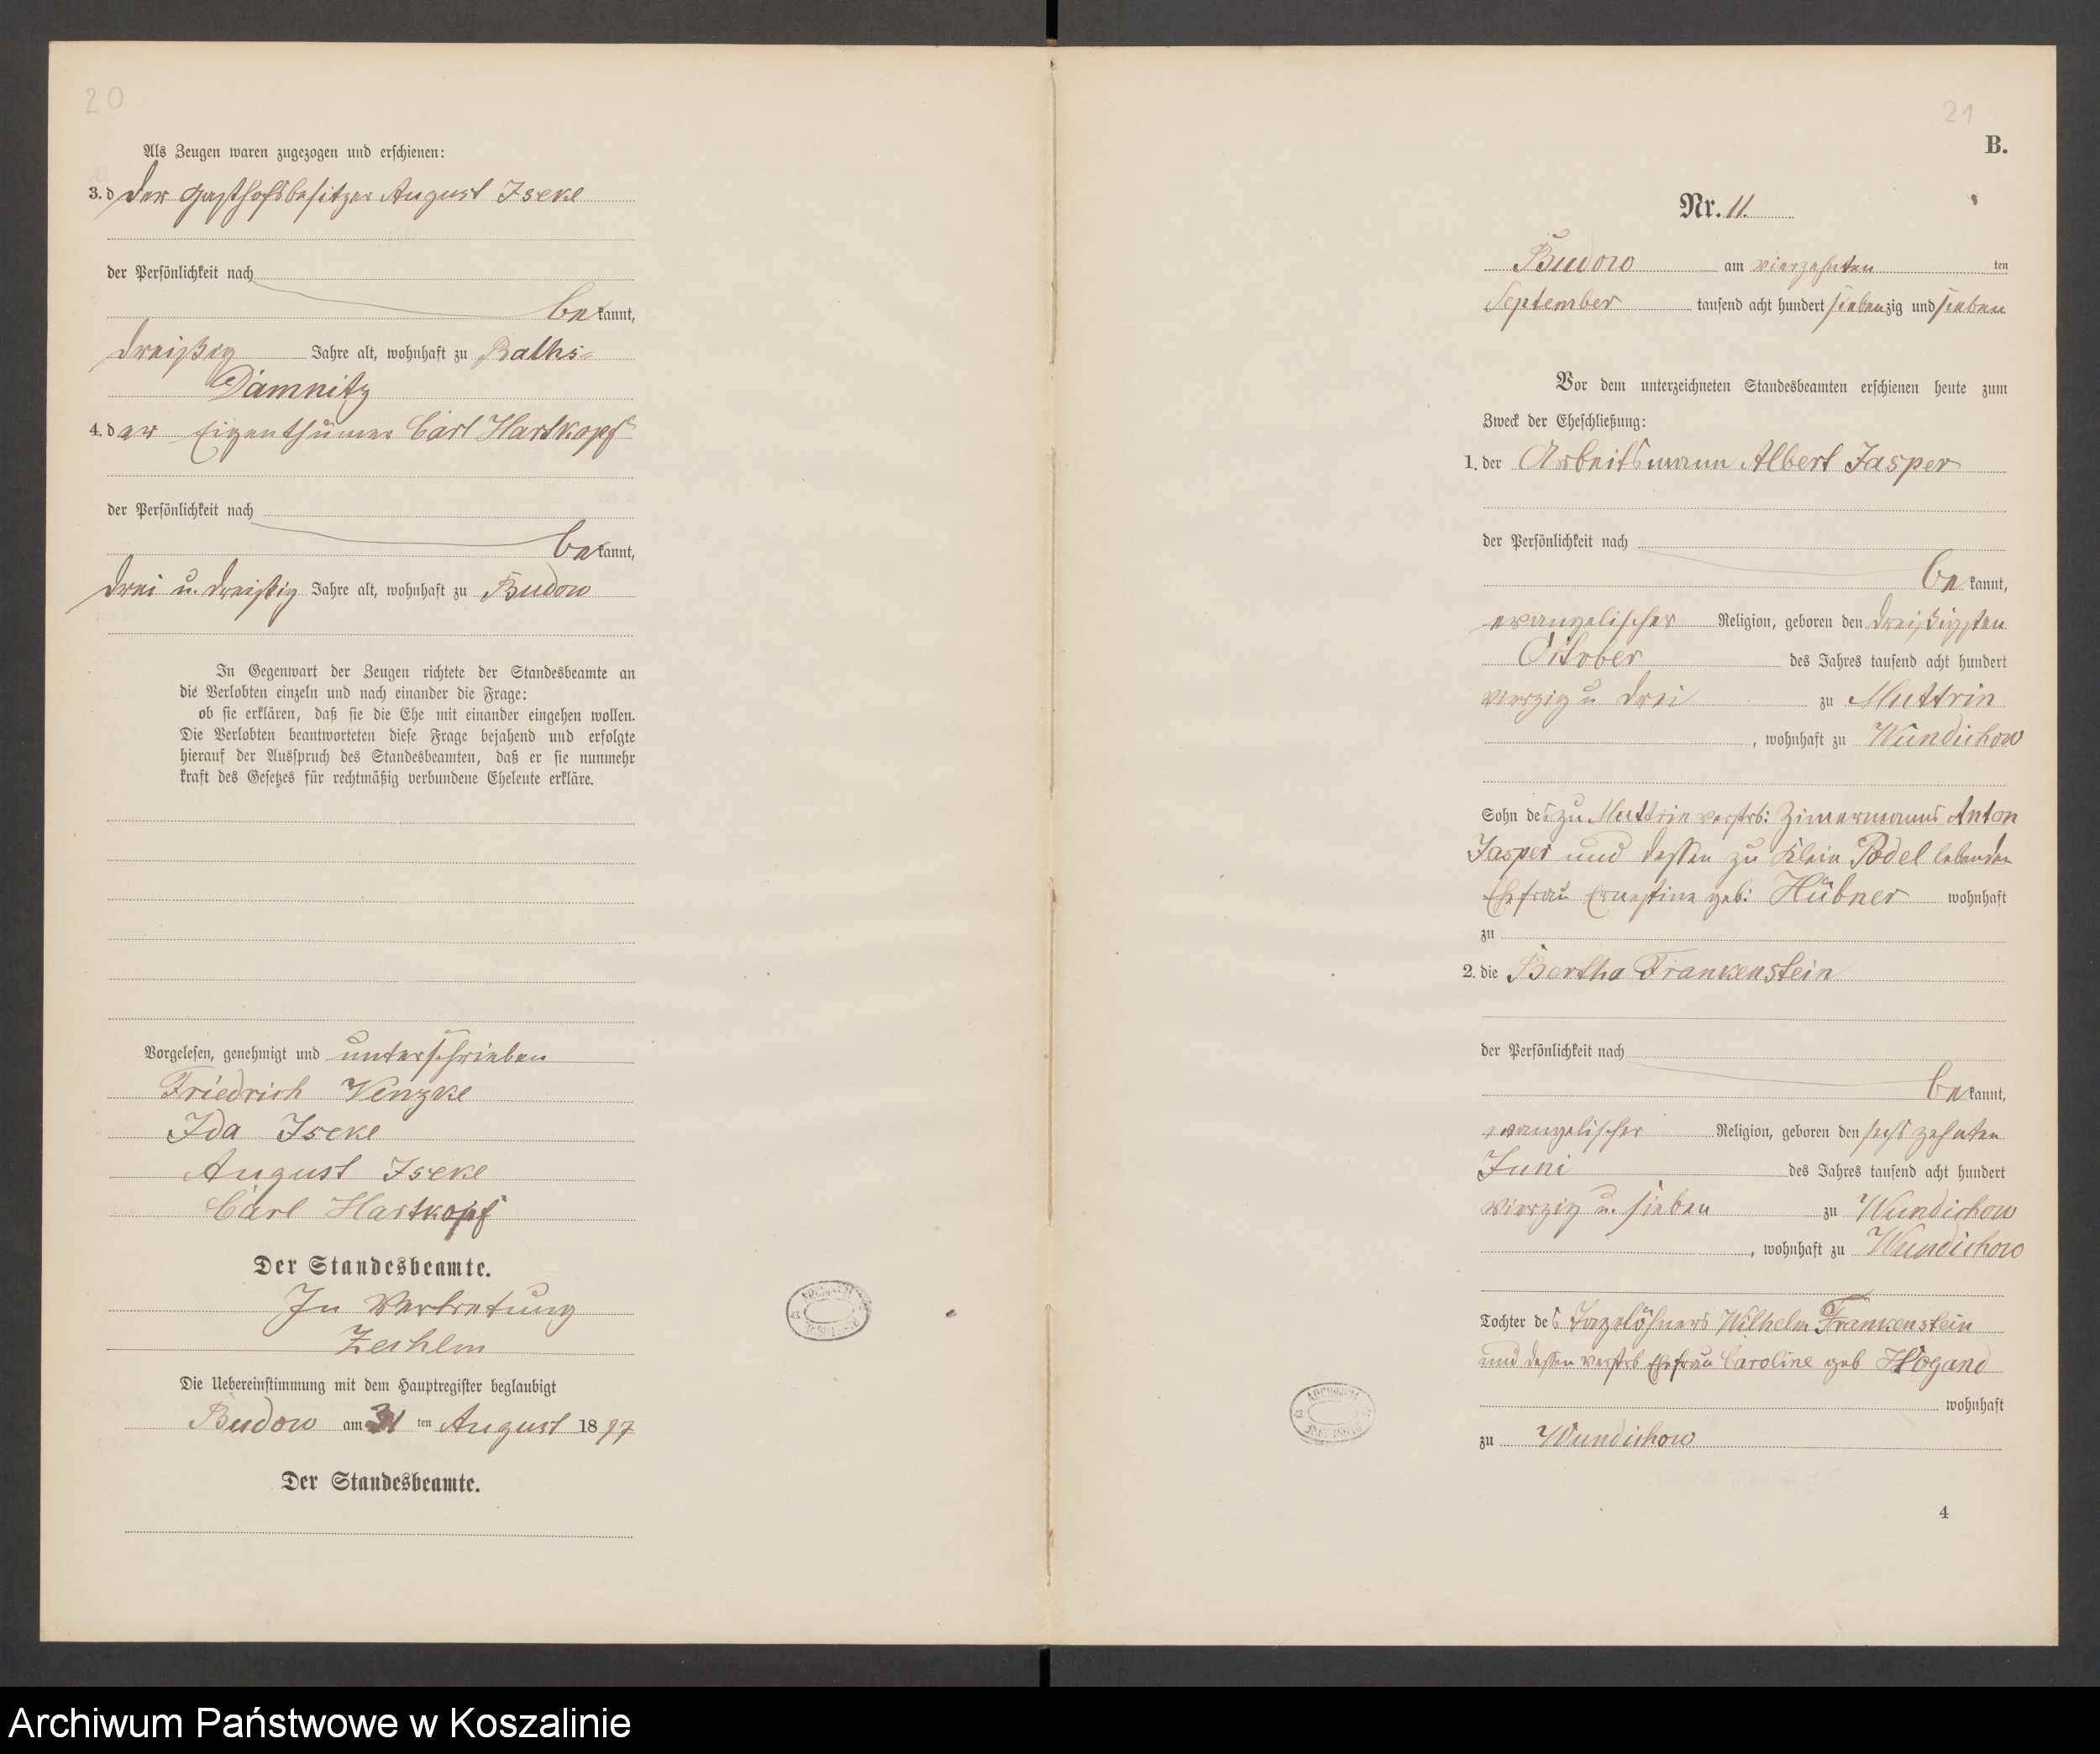 20
Als Zeugen waren zugezogen und erschienen:
3. d der Gasthofsbesitzer August Iseke
der Persönlichkeit nach
be kannt,
dreißig Jahre alt, wohnhaft zu Raths-
Damnitz
4. der Eigenthümer Carl Hartkopf
der Persönlichkeit nach
be kannt,
drei u. dreißig Jahre alt, wohnhaft zu Budow
In Gegenwart der Zeugen richtete der Standesbeamte an
die Verlobten einzeln und nach einander die Frage:
ob sie erklären, daß sie die Ehe mit einander eingehen wollen.
Die Verlobten beantworteten diese Frage bejahend und erfolgte
hierauf der Ausspruch des Standesbeamten, daß er sie nunmehr
kraft des Gesetzes für rechtmäßig verbundene Eheleute erkläre.
Vorgelesen, genehmigt und unterschrieben
Friedrich Venzke
Ida Iseke
August Iseke
Carl Hartkopf
Der Standesbeamte.
In Vertretung
Zechlin
Die Uebereinstimmung mit dem Hauptregister beglaubigt
Budow am 31 ten August 1877
Der Standesbeamte.
21
B.
Nr. 11.
Budow am vierzehnten ten
September tausend acht hundert siebenzig und sieben
Vor dem unterzeichneten Standesbeamten erschienen heute zum
Zweck der Eheschließung:
1. der Arbeitsmann Albert Jasper
der Persönlichkeit nach
be kannt,
evangelischer Religion, geboren den dreißigsten
October des Jahres tausend acht hundert
vierzig u drei zu Muttrin
, wohnhaft zu Wundichow
Sohn des zu Muttrin verstrb: Zimermanns Anton
Jasper und dessen zu Klein Podel lebenden
Ehefrau Ernestine geb: Hübner wohnhaft
zu
2. die Bertha Frankenstein
der Persönlichkeit nach
be kannt,
evangelischer Religion, geboren den sechszehnten
Juni des Jahres tausend acht hundert
vierzig u. sieben zu Wundichow
, wohnhaft zu Wundichow
Tochter des Tagelöhners Wilhelm Frankenstein
und dessen verstrb Ehefrau Caroline geb Hogand
wohnhaft
zu Wundichow
4
Archiwum Państwowe w Koszalinie